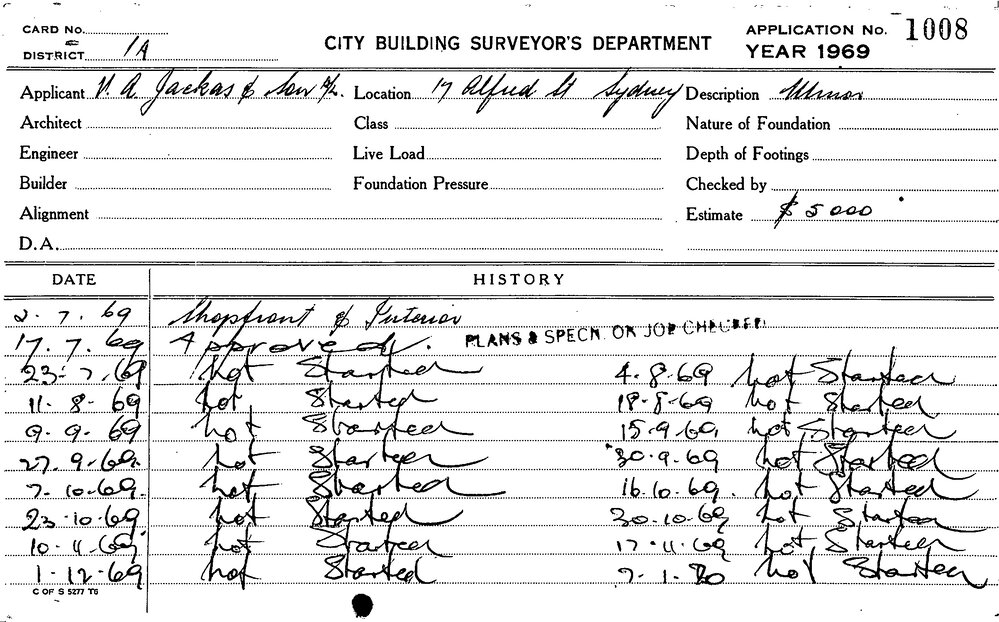 CARD No.
DISTRICT 1A
CITY BUILDING SURVEYOR'S DEPARTMENT
APPLICATION No. 1008
YEAR 1969
Applicant V. A. Jackas & Son P/L. Location 17 Alfred St Sydney Description Minor
Architect Class Nature of Foundation
Engineer Live Load Depth of Footings
Builder Foundation Pressure Checked by
Alignment Estimate $5000
D.A.
DATE HISTORY
2. 7. 69 Shopfront & Interior
17. 7. 69 Approved. PLANS & SPECN. ON JOB CHECKED
23. 7. 69 not Started 4. 8. 69 not Started
11. 8. 69 not Started 18. 8. 69 not Started
9. 9. 69 not Started 15. 9. 69 not Started
27. 9. 69 not Started 30. 9. 69 not Started
7. 10. 69. not Started 16. 10. 69. not Started
23. 10. 69 not Started 30. 10. 69 not Started
10. 11. 69 not Started 17. 11. 69 not Started
1. 12. 69 not Started 7. 1. 70 not Started
C OF S 5277 T6